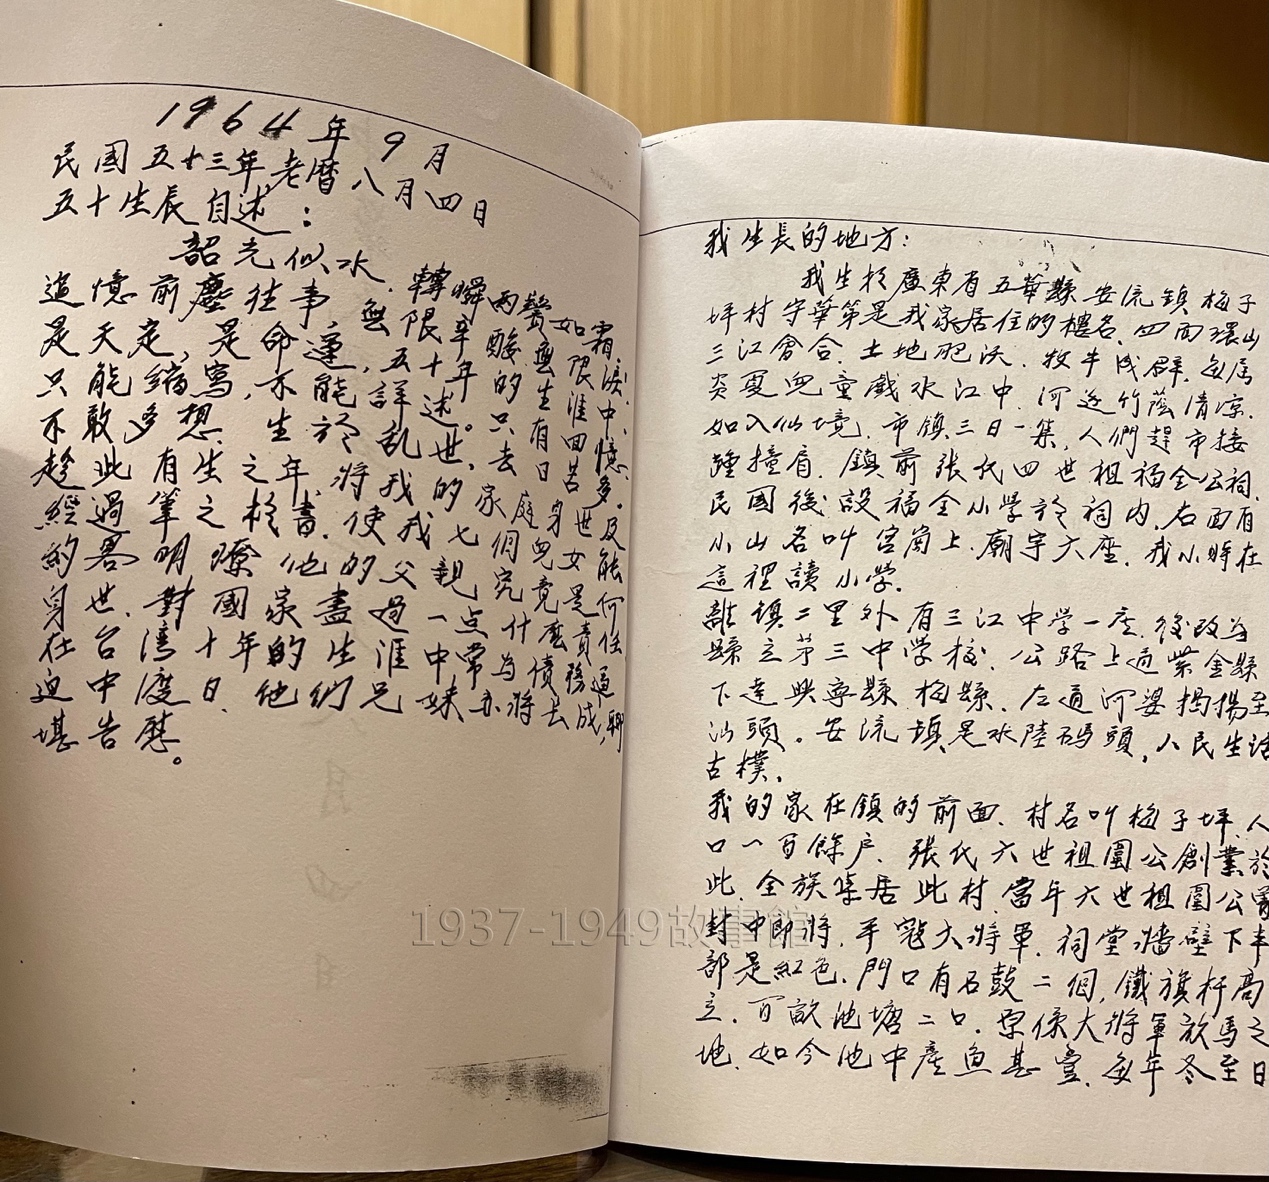 1964年9月
民國五十三年,老曆八月四日
五十生辰自述:
韶光似水.轉瞬兩鬢如霜,
追憶前塵往事無限辛酸無限淚.
是天定,是命運,五十年的生涯中,
只能縮寫,不能詳述。只有回憶.
不敢多想.生於亂世,去日苦多。
趁此有生之年.將我的家庭身世及
經過筆之於書.使我七個兒女能
約畧明瞭他的父親究竟是何
身世.對國家盡過一点什麼責任.
在台灣十年的生涯中常為債務逼
迫中渡日.他們兄妹亦將長成,聊
堪告慰。
我生長的地方:
我生於廣東省五華縣安流鎮梅子
坪村守華第是我家居住的樓名.四面環山
三江會合.土地肥沃.牧牛成群.每屆
炎夏兒童戲水江中.河邊竹蔭清涼.
如入仙境.市鎮三日一集,人們趕市接
踵撞肩.鎮前張氏四世祖福全公祠.
民國後設福全小学於祠內.右面有
小山名叫宮崗上.廟宇六座.我小時在
這裡讀小学.
離鎮二里外有三江中学一座.後改為
縣立第三中学校.公路上通紫金縣
下達興寧縣梅縣.左通河婆揭揚至
汕頭。安流鎮是水陸碼頭,人民生活
古樸.
我的家在鎮的前面.村名叫梅子坪.人
口一百餘户.張氏六世祖圍公創業於
此.全族集居此村.當年六世祖圍公
封中郎將.平寇大將軍.祠堂墻壁下半
部是紅色.門口有石鼓二個,鐵旗杆高
立.百畝池塘二口.原係大將軍放馬之
地.如今池中產魚甚豐.每年冬至日
1937-1949故事館